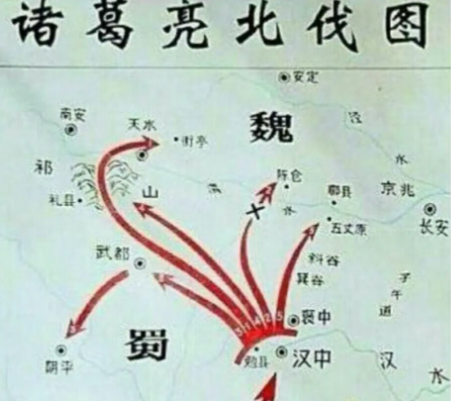 诸葛亮北伐图
安定
南安
天水
街亭
魏
泾
水
祁
山
陈仓
郿县
京兆
礼县
渭
水
五丈原
长安
武都
斜谷
箕谷
子
午
道
3 1 4 2 5
褒中
蜀
阴平
勉县
汉中
汉
水